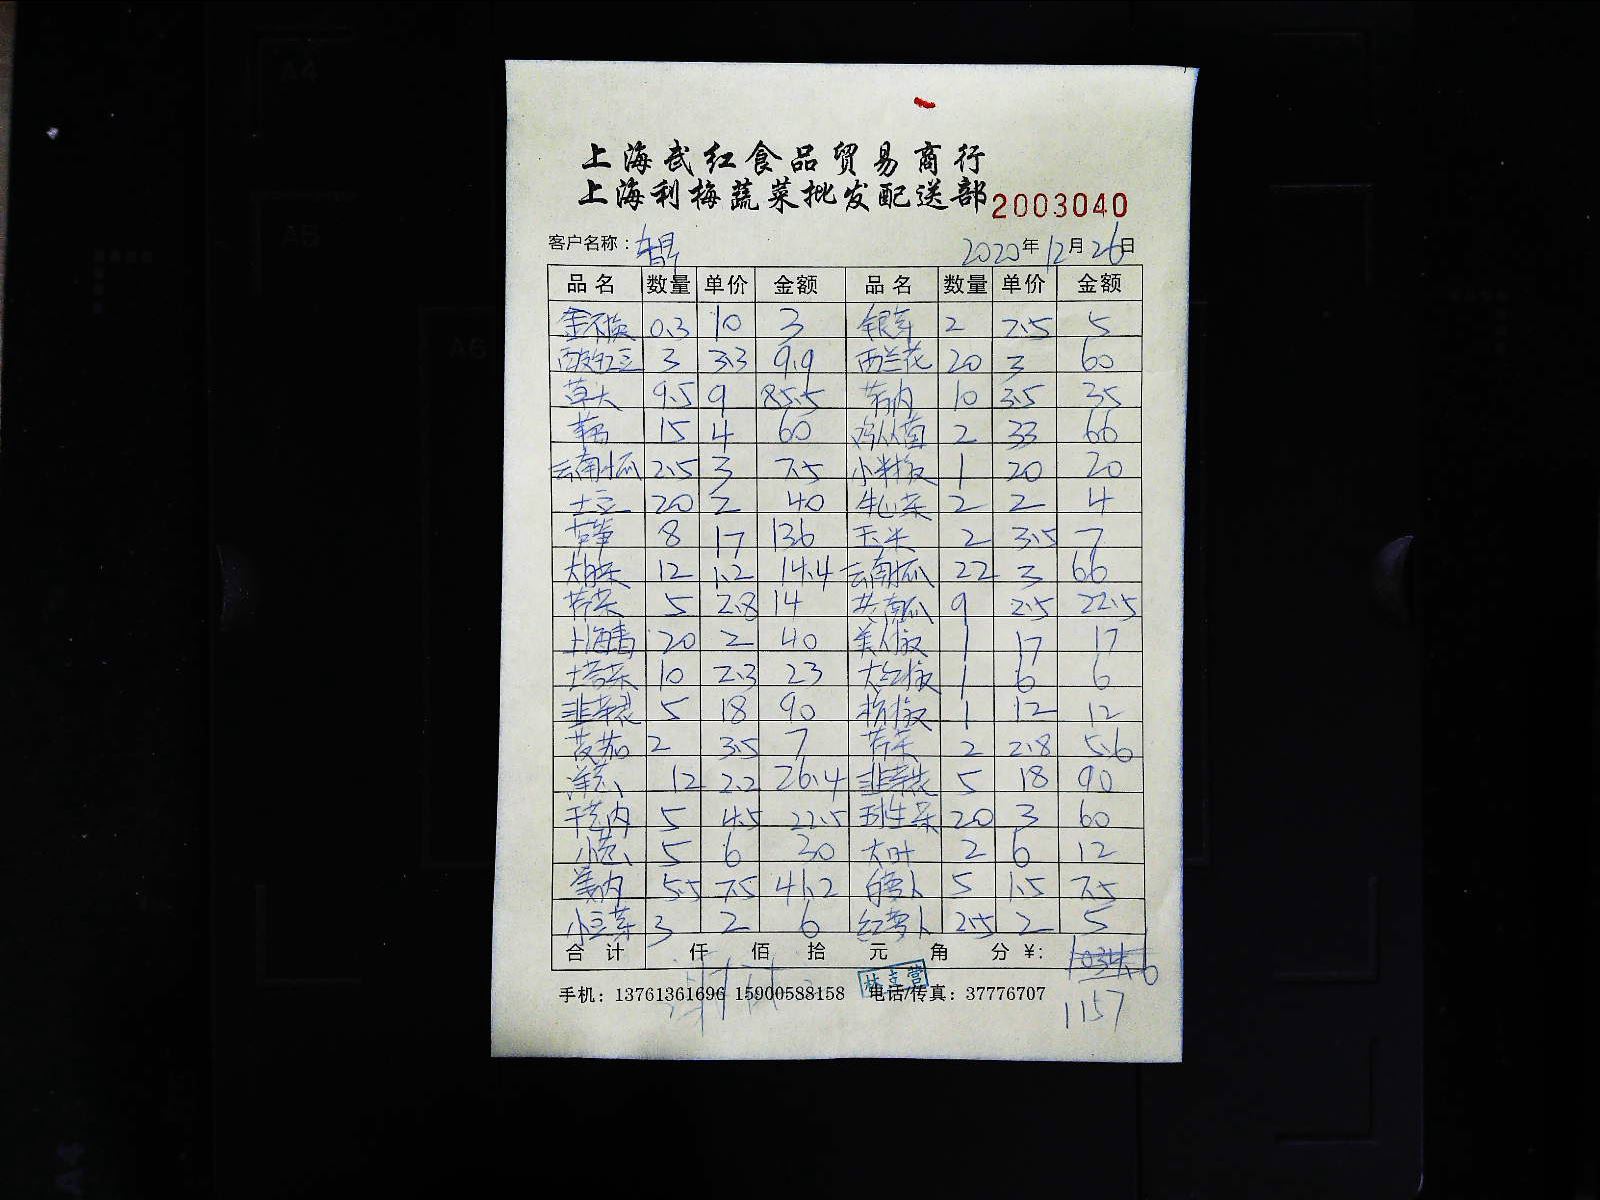 上海武红食品贸易商行
上海利梅蔬菜批发配送部 2003040
客户名称： 2020年12月26日
品名 数量 单价 金额 品名 数量 单价 金额
金不换 0.3 10 3 银芽 2 2.5 5
酸豇豆 3 3.3 9.9 西兰花 20 3 60
草头 9.5 9 85.5 10 3.5 35
15 4 60 鸡从菌 2 33 66
云南小瓜 2.5 3 7.5 小米椒 1 20 20
土豆 20 2 40 牛心菜 2 2 4
芦笋 8 17 136 玉米 2 3.5 7
大白菜 12 1.2 14.4 云南小瓜 22 3 66
芹菜 5 2.8 14 南瓜 9 2.5 22.5
上海青 20 2 40 美人椒 1 17 17
塔菜 10 2.3 23 大红椒 1 6 6
韭菜花 5 18 90 杭椒 1 12 12
茭茄 2 3.5 7 芹菜 2 2.8 5.6
洋葱 12 2.2 26.4 韭菜花 5 18 90
5 4.5 22.5 生菜 20 3 60
小葱 5 6 30 大叶 2 6 12
姜肉 5.5 7.5 41.2 白萝卜 5 1.5 7.5
小豆芽 3 2 6 红萝卜 2.5 2 5
合计 仟 佰 拾 元 角 分 ¥:
手机：13761361696 15900588158 电话/传真：37776707
1157